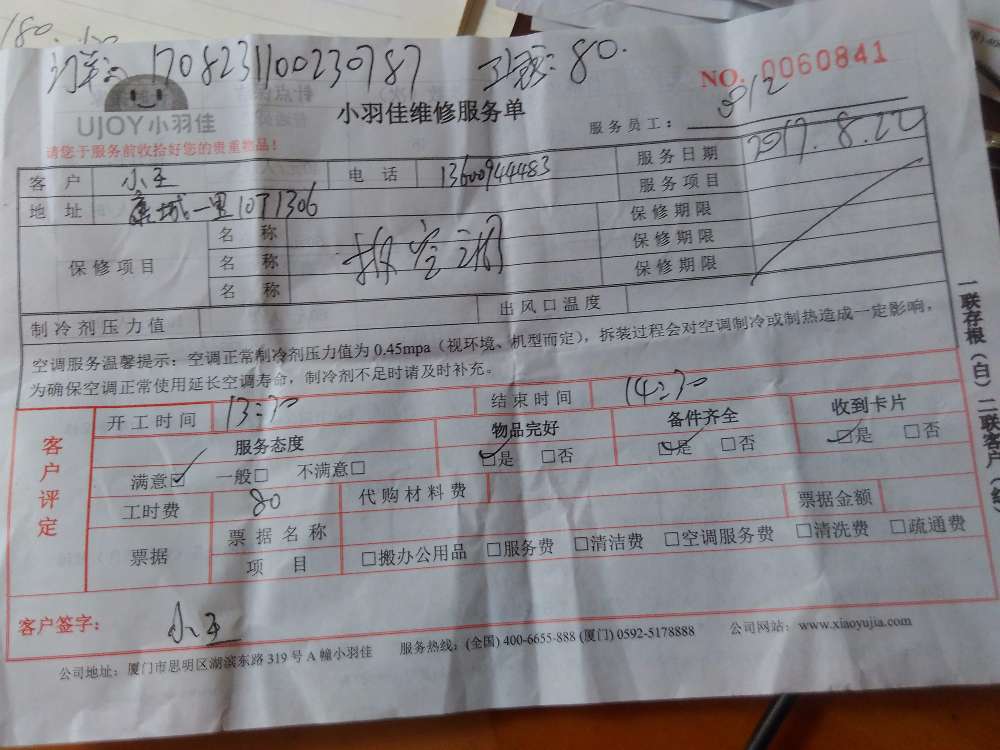 180.
订单 170823110023078787 工时费:80.
NO. 0060841
UJOY小羽佳
小羽佳维修服务单
服务员工:
请您于服务前收拾好您的贵重物品!
客户 小王 电话 13600944483 服务日期 2017.8.22
地址 莲城一里107 1306 服务项目
保修项目 名称 拆空调 保修期限
名称 保修期限
名称 保修期限
制冷剂压力值 出风口温度
空调服务温馨提示:空调正常制冷剂压力值为0.45mpa(视环境、机型而定),拆装过程会对空调制冷或制热造成一定影响,
为确保空调正常使用延长空调寿命,制冷剂不足时请及时补充。
客户评定
开工时间 13:30 结束时间 14:30
服务态度 物品完好 备件齐全 收到卡片
满意☑ 一般□ 不满意□ ☑是 □否 ☑是 □否 ☑是 □否
工时费 80 代购材料费 票据金额
票据 票据名称
项目 □搬办公用品 □服务费 □清洁费 □空调服务费 □清洗费 □疏通费
客户签字: 小王
公司地址:厦门市思明区湖滨东路319号A幢小羽佳 服务热线:(全国) 400-6655-888 (厦门) 0592-5178888 公司网站:www.xiaoyujia.com
一联存根(白)二联客户(红)